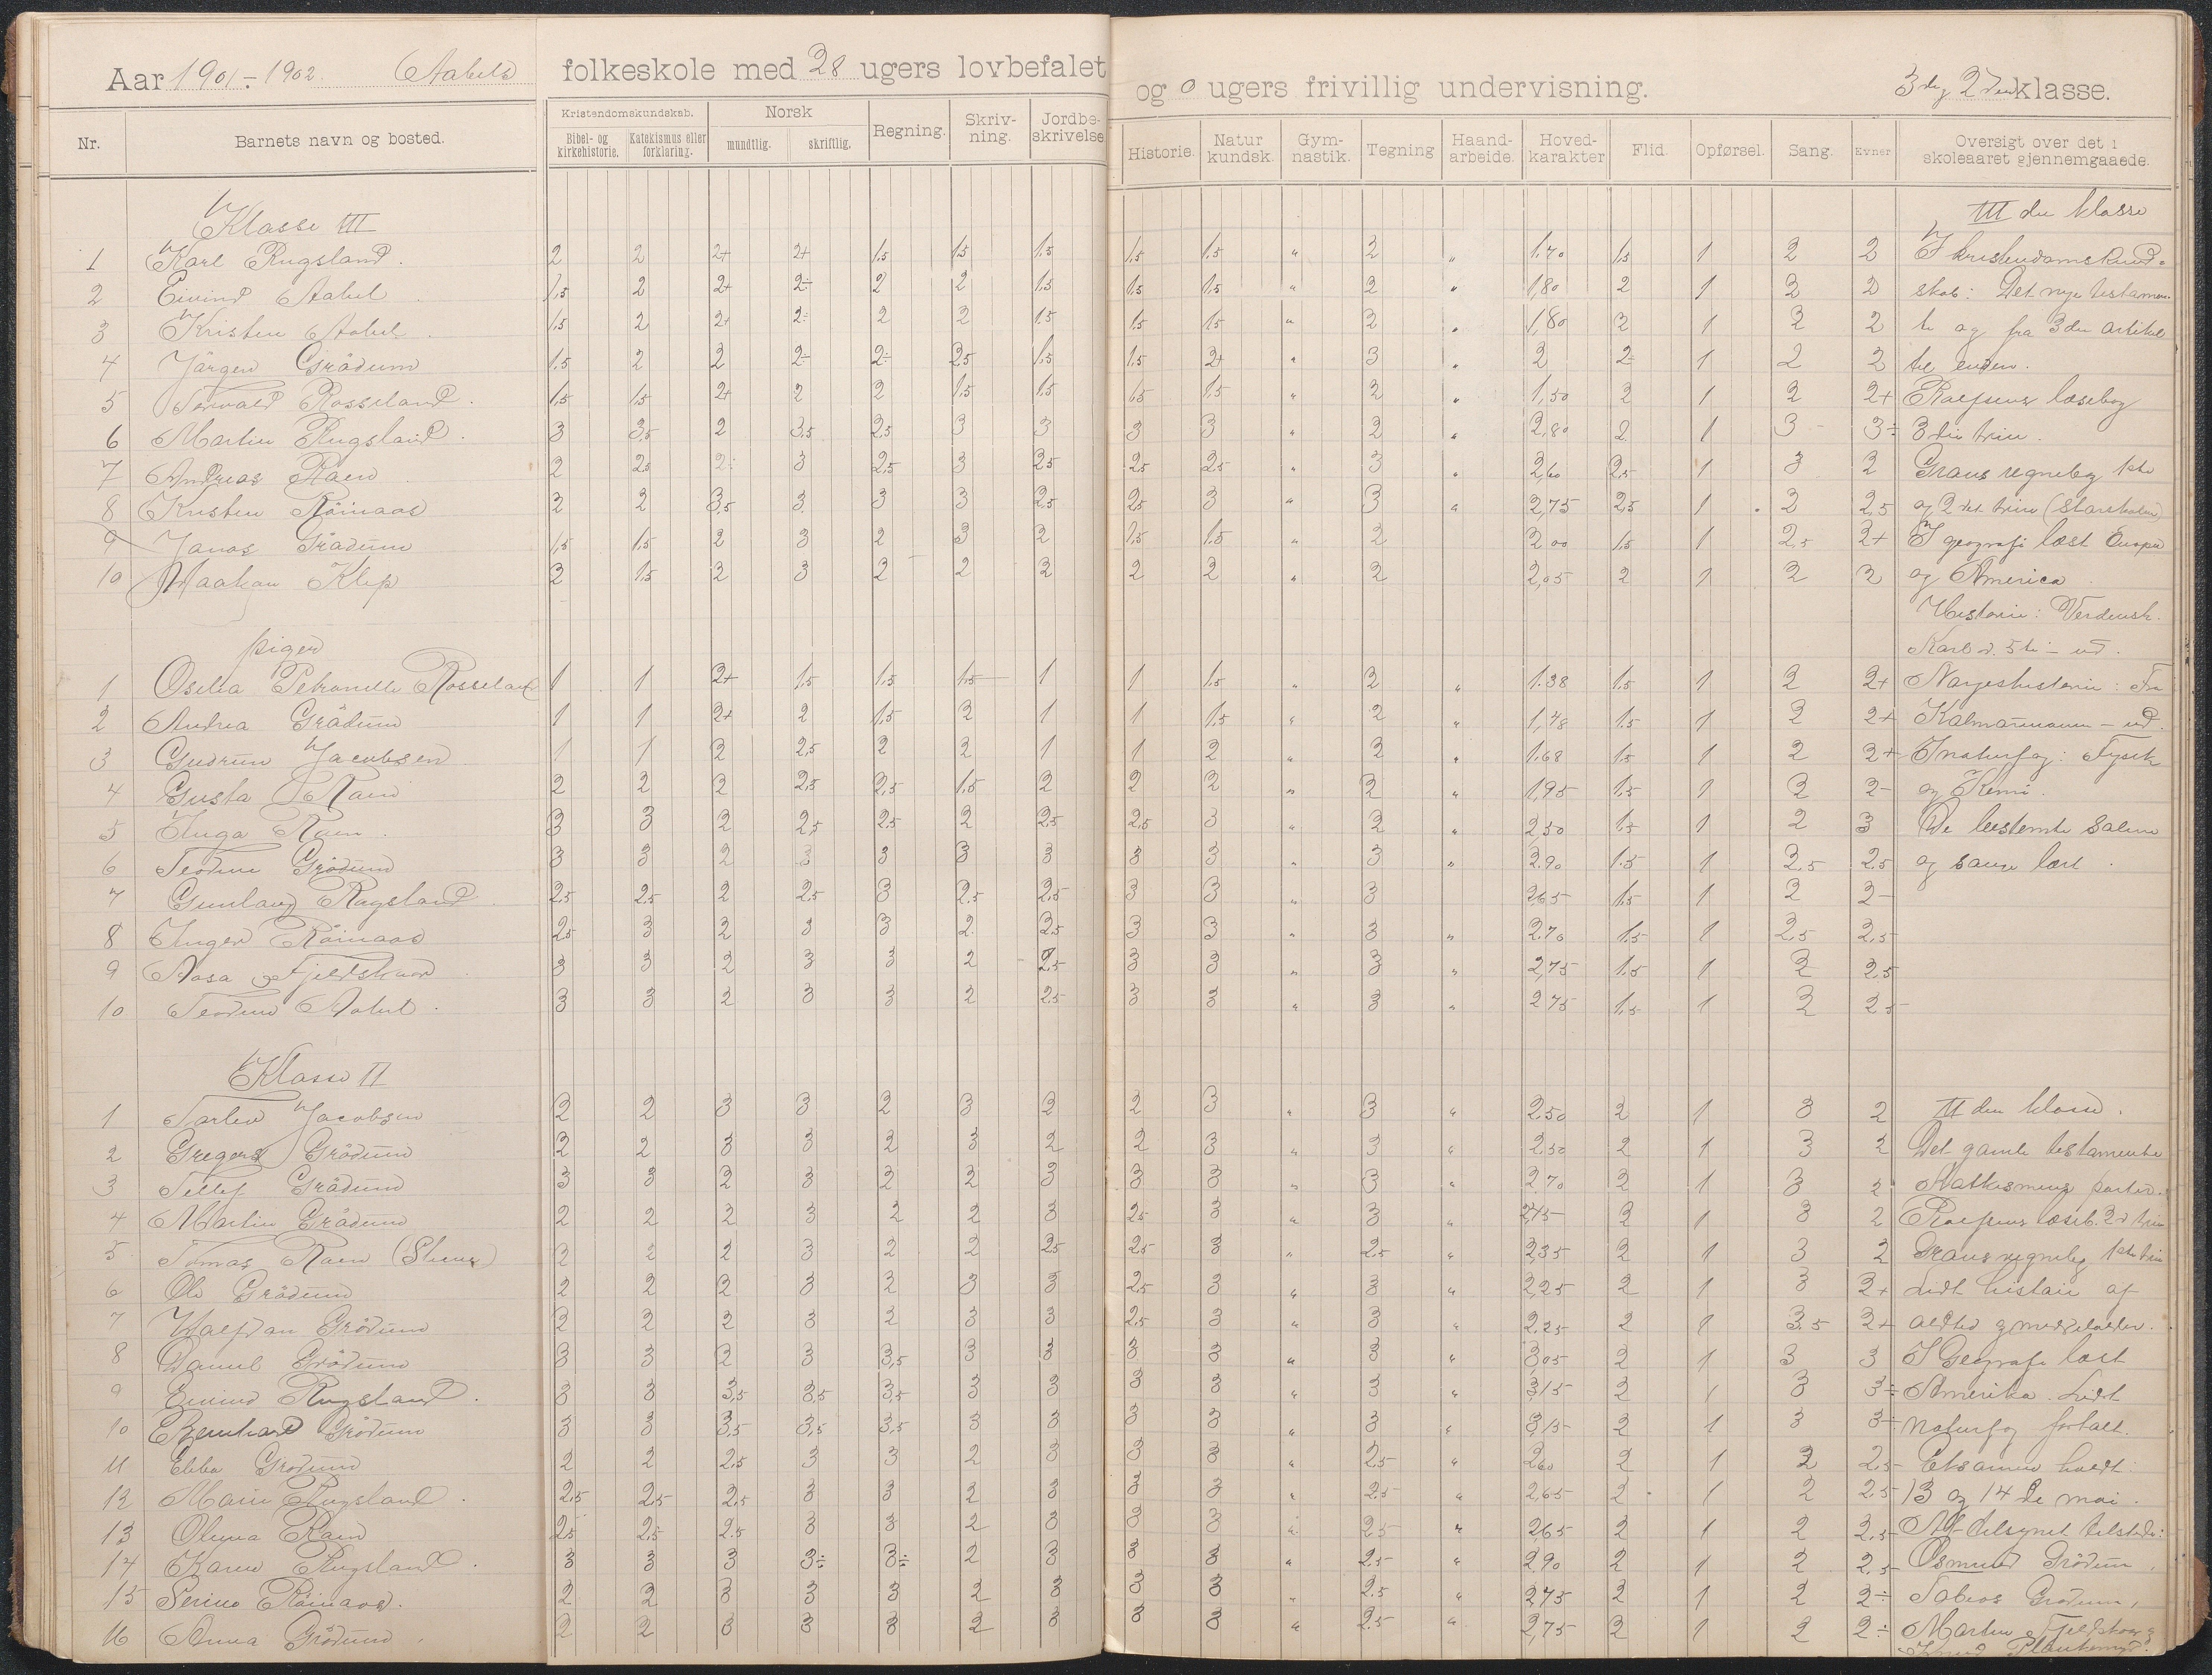 Aar 1901 - 1902. Aabels folkeskole med 28 ugers lovbefalet og 0 ugers frivillig undervisning. 3die og 2den klasse.
Nr. Barnets navn og bosted. Kristendomskundskab. Bibel- og kirkehistorie. Katekismus eller forklaring. Norsk mundtlig. skriftlig. Regning. Skrivning. Jordbeskrivelse Historie. Naturkundsk. Gymnastik. Tegning Haandarbeide. Hovedkarakter Flid. Opførsel. Sang. Evner Oversigt over det i skoleaaret gjennemgaaede.
Klasse III III die klasse
1 Karl Rugsland. 2 2 2+ 2+ 1,5 1,5 1,5 1,5 1,5 " 2 " 1,70 1,5 1 2 2 I kristendomskund-
2 Eivind Aabel 1,5 2 2+ 2÷ 2 2 1,5 1,5 1,5 " 2 " 1,80 2 1 2 2 skab: Det nye testamen-
3 Kristen Aabel 1,5 2 2+ 2÷ 2 2 1,5 1,5 1,5 " 2 " 1,80 2 1 2 2 te og fra 3die artikel
4 Jörgen Grödum 1,5 2 2 2÷ 2÷ 2,5 1,5 1,5 2+ " 3 " 2 2÷ 1 2 2 til enden.
5 Torvald Rosseland. 1,5 1,5 2+ 2 2 1,5 1,5 1,5 1,5 " 2 " 1,50 2 1 2 2+ Rolfsens læsebog
6 Martin Rugsland. 3 3,5 2 3,5 2,5 3 3 3 3 " 2 " 2,80 2 1 3 3÷ 3die trin.
7 Andreas Raen 2 2,5 2÷ 3 2,5 3 2,5 2,5 2,5 " 3 " 2,60 2,5 1 3 2 Grans regnebog 1ste
8 Kristen Röinaas 2 2 3,5 3 3 3 2,5 2,5 3 " 3 " 2,75 2,5 1 2 2,5 og 2det trin
9 Jonas Grödum 1,5 1,5 2 3 2 3 2 1,5 1,5 " 2 2,00 1,5 1 2,5 2+ I geografi læst Europa
10 Haakon Klep 2 1,5 2 3 2 2 2 2 2 " 2 2,05 2 1 2 2 og America
Historie: Verdensh.
piger Karl d. 5te - ud.
1 Osilia Petronelle Rosseland 1 1 2+ 1,5 1,5 1,5 1 1 1,5 " 2 " 1.38 1,5 1 2 2+ Norgeshistorie: Fra
2 Andrea Grödum 1 1 2+ 2 1,5 2 1 1 1,5 " 2 " 1,48 1,5 1 2 2+ Kalmarunionen - ud.
3 Gudrun Jacobsen 1 1 2 2,5 2 2 1 1 2 " 2 " 1.68 1,5 1 2 2+ I naturfag: Fysik
4 Gusta Raen 2 2 2 2,5 2,5 1,5 2 2 2 " 2 " 1,95 1,5 1 2 2- og Kemi.
5 Inga Raen. 3 3 2 2,5 2,5 2 2,5 2,5 3 " 2 " 2,50 1,5 1 2 3 De bestemte salme
6 Teodine Grödum 3 3 2 3 3 3 3 3 3 " 3 " 2.90 1.5 1 2,5 2,5 og sange lært.
7 Gunlaug Rugsland 2,5 2,5 2 2,5 3 2,5 2,5 3 3 3 2,65 1,5 1 2 2-
8 Inger Röinaas 2,5 3 2 3 3 2 2,5 3 3 " 3 " 2.70 1,5 1 2,5 2,5
9 Aasa Fjeldskaar 3 3 2 3 3 2 2,5 3 3 " 3 " 2,75 1,5 1 2 2,5
10 Teodine Aabel. 3 3 2 3 3 2 2,5 3 3 " 3 " 2,75 1,5 1 2 2,5
Klasse II
1 Torlev Jacobsen 2 2 3 3 2 3 2 2 3 " 3 " 2,50 2 1 3 2 II den klasse.
2 Gregers Grödum 2 2 3 3 2 3 2 2 3 " 3 " 2,50 2 1 3 2 Det gamle testamente
3 Tellef Grödum 3 3 2 3 2 2 3 3 3 " 3 " 2,70 2 1 3 2 Katkismens parter.
4 Martin Grödum 2 2 2 3 2 2 3 2,5 3 " 3 " 2,45 2 1 3 2 Rolfsens læseb. 2d trin
5 Tomas Raen 2 2 2 3 2 2 2,5 2,5 3 " 2,5 " 2,35 2 1 3 2 Grans regnebog 1ste trin
6 Ole Grödum 2 2 2 3 2 3 3 2,5 3 " 3 " 2,25 2 1 3 2+ Lidt histori af
7 Halfdan Grödum 2 2 2 3 2 3 3 2,5 3 " 3 " 2.25 2 1 3.5 2+ oldtid og middelalder.
8 Daniel Grödum 3 3 2 3 3,5 3 3 3 3 " 3 " 3,05 2 1 3 3 I Geografi læst
9 Eivind Rugsland. 3 3 3,5 3,5 3,5 3 3 3 3 " 3 " 3,15 2 1 3 3÷ Amerika. Lidt
10 Bernhard Grödum 3 3 3,5 3,5 3,5 3 3 3 3 " 3 " 3,15 2 1 3 3÷ naturfag fortalt.
11 Ebba Grodum 2 2 2,5 3 3 2 3 3 3 " 2,5 " 2,60 2 1 2 2,5 Eksamen holdt:
12 Marie Rugsland. 2,5 2,5 2,5 3 3 2 3 3 3 " 2,5 " 2,65 2 1 2 2,5 13 og 14de mai.
13 Olina Raen 2,5 2,5 2.5 3 3 2 3 3 3 " 2,5 " 2,65 2 1 2 2,5 Af tilsynet tilstede:
14 Karen Rugsland. 3 3 3 3÷ 3÷ 2 3 3 3 " 2.5 " 2,90 2 1 2 2,5 Osmund Grödum,
15 Serine Röinaas. 2 2 3 3 3 2 3 3 3 " 2.5 " 2,75 2 1 2 2÷ Tobias Grodum,
16 Anna Grödum. 2 2 3 3 3 2 3 3 3 " 2.5 " 2,75 2 1 2 2÷ Martin Fjeldskaar og
Knud